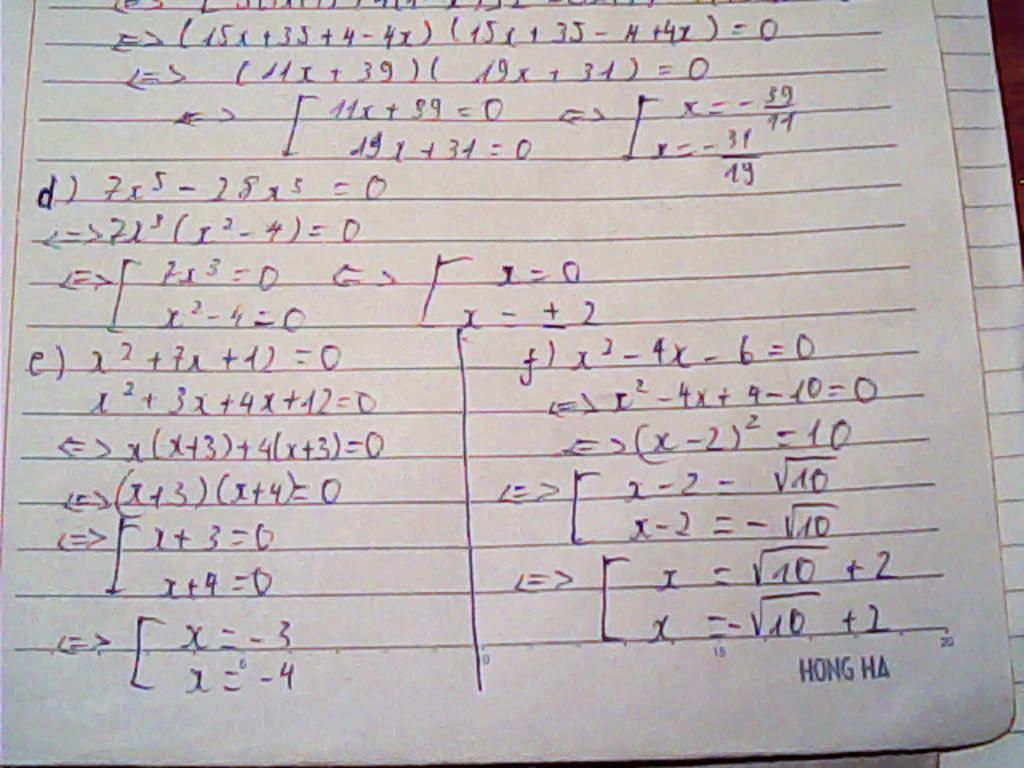 <=> (15x+35+4-4x)(15x+35-4+4x)=0
<=> (11x+39)(19x+31)=0
<=> [ 11x+39=0 <=> [ x=-39/11
19x+31=0 x=-31/19
d) 7x⁵ - 28x³ = 0
<=> 7x³(x²-4)=0
<=> [ 7x³=0 <=> [ x=0
x²-4=0 x = ±2
e) x²+7x+12=0
x²+3x+4x+12=0
<=> x(x+3)+4(x+3)=0
<=> (x+3)(x+4)=0
<=> [ x+3=0
x+4=0
<=> [ x=-3
x=-4
f) x²-4x-6=0
<=> x²-4x+4-10=0
<=> (x-2)²=10
<=> [ x-2=√10
x-2=-√10
<=> [ x=√10+2
x=-√10+2
5 0 15 20
HONG HA